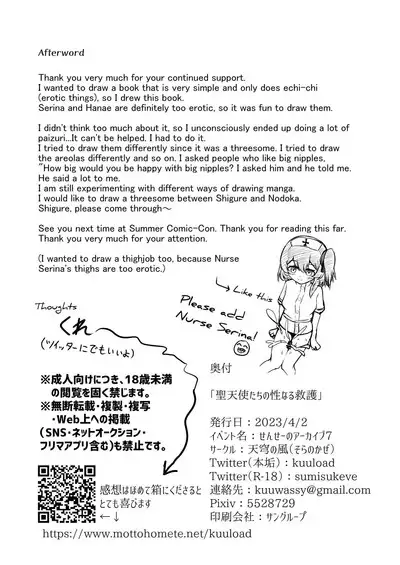 Afterword
Thank you very much for your continued support.
I wanted to draw a book that is very simple and only does echi-chi
(erotic things), so I drew this book.
Serina and Hanae are definitely too erotic, so it was fun to draw them.
I didn't think too much about it, so I unconsciously ended up doing a lot of
paizuri...It can't be helped. I had to do it.
I tried to draw them differently since it was a threesome. I tried to draw
the areolas differently and so on. I asked people who like big nipples,
"How big would you be happy with big nipples? I asked him and he told me.
He said a lot to me.
I am still experimenting with different ways of drawing manga.
I would like to draw a threesome between Shigure and Nodoka.
Shigure, please come through~
See you next time at Summer Comic-Con. Thank you for reading this far.
Thank you very much for your attention.
(I wanted to draw a thighjob too, because Nurse
Serina's thighs are too erotic.)
Like this
Please add
Nurse Serina!
Thoughts
くれ
(ツイッターにでもいいよ)
※成人向けにつき、18歳未満
の閲覧を固く禁じます。
※無断転載・複製・複写
・Web上への掲載
(SNS・ネットオークション・
フリマアプリ含む)も禁止です。
感想はほめて箱にくださると
とても喜びます
←↓
https://www.mottohomete.net/kuuload
奥付
「聖天使たちの性なる救護」
発行日：2023/4/2
イベント名：せんせーのアーカイブ7
サークル：天穹の風(そらのかぜ)
Twitter(本垢)：kuuload
Twitter(R-18)：sumisukeve
連絡先：kuuwassy@gmail.com
Pixiv：5528729
印刷会社：サングループ